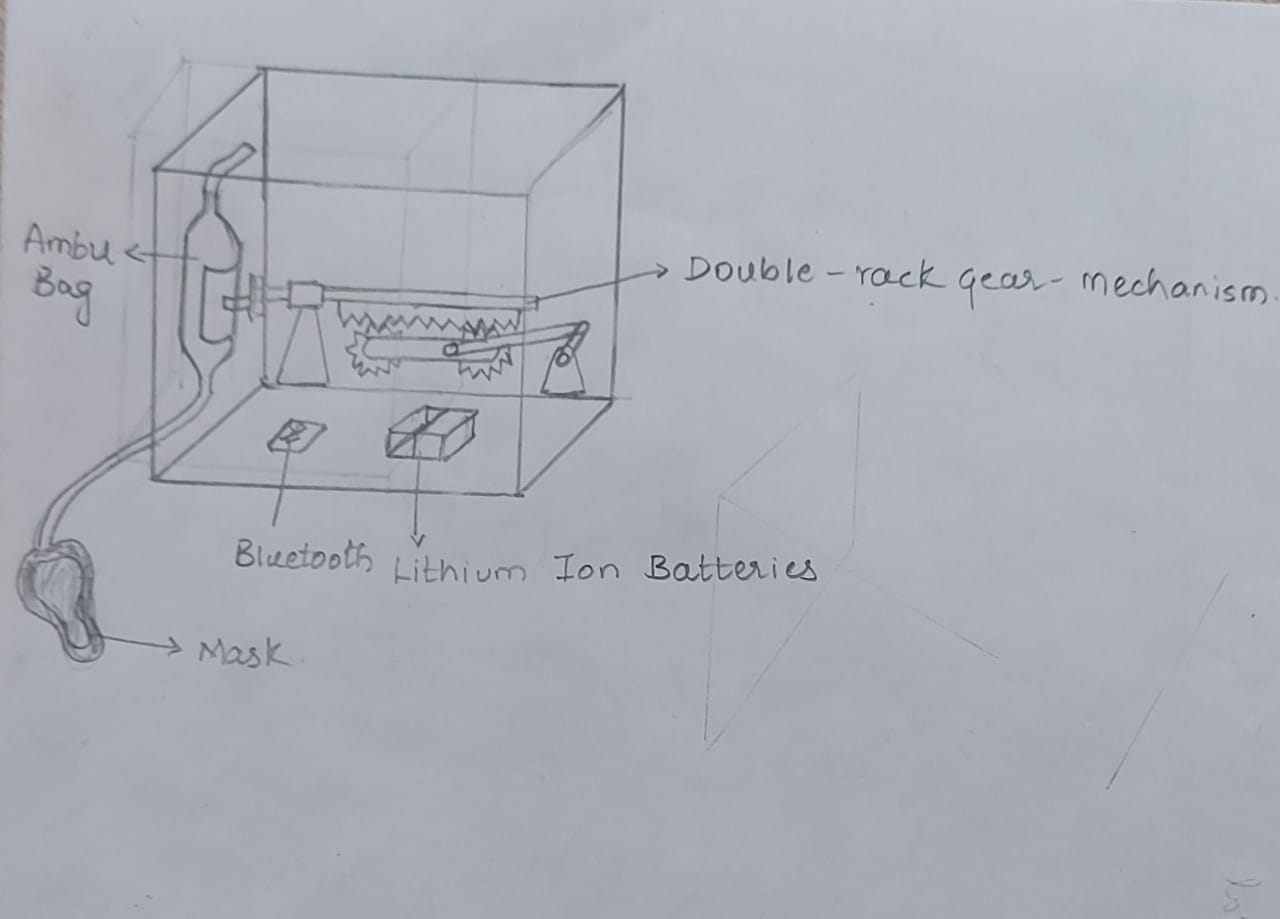 Ambu
Bag
Double-rack gear-mechanism.
Bluetooth
Lithium Ion Batteries
Mask.